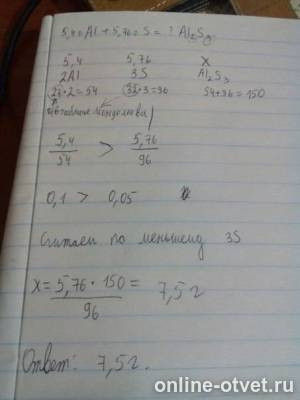 5,4 = Al + 5,76 = S = ? Al₂S₃.
5,4 5,76 X
2Al 3S Al₂S₃
27·2=54 32·3=96 54+96=150
в таблице Менделеева)
5,4/54 > 5,76/96
0,1 > 0,05
Считаем по меньшему 3S
X = 5,76 · 150 / 96 = 7,5 г
Ответ: 7,5 г.
online-otvet.ru